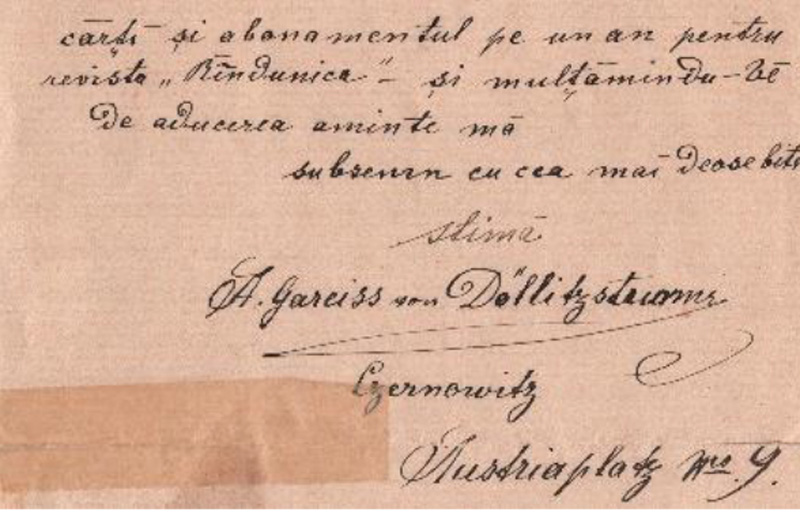 cărți și abonamentul pe un an pentru
revista „Rîndunica” – și mulțămindu-Vĕ
de aducerea aminte mă
subsemn cu cea mai deosebită
stimă
A. Gareiss von Döllitzsturm
Czernowitz
Austriaplatz Nro. 9.